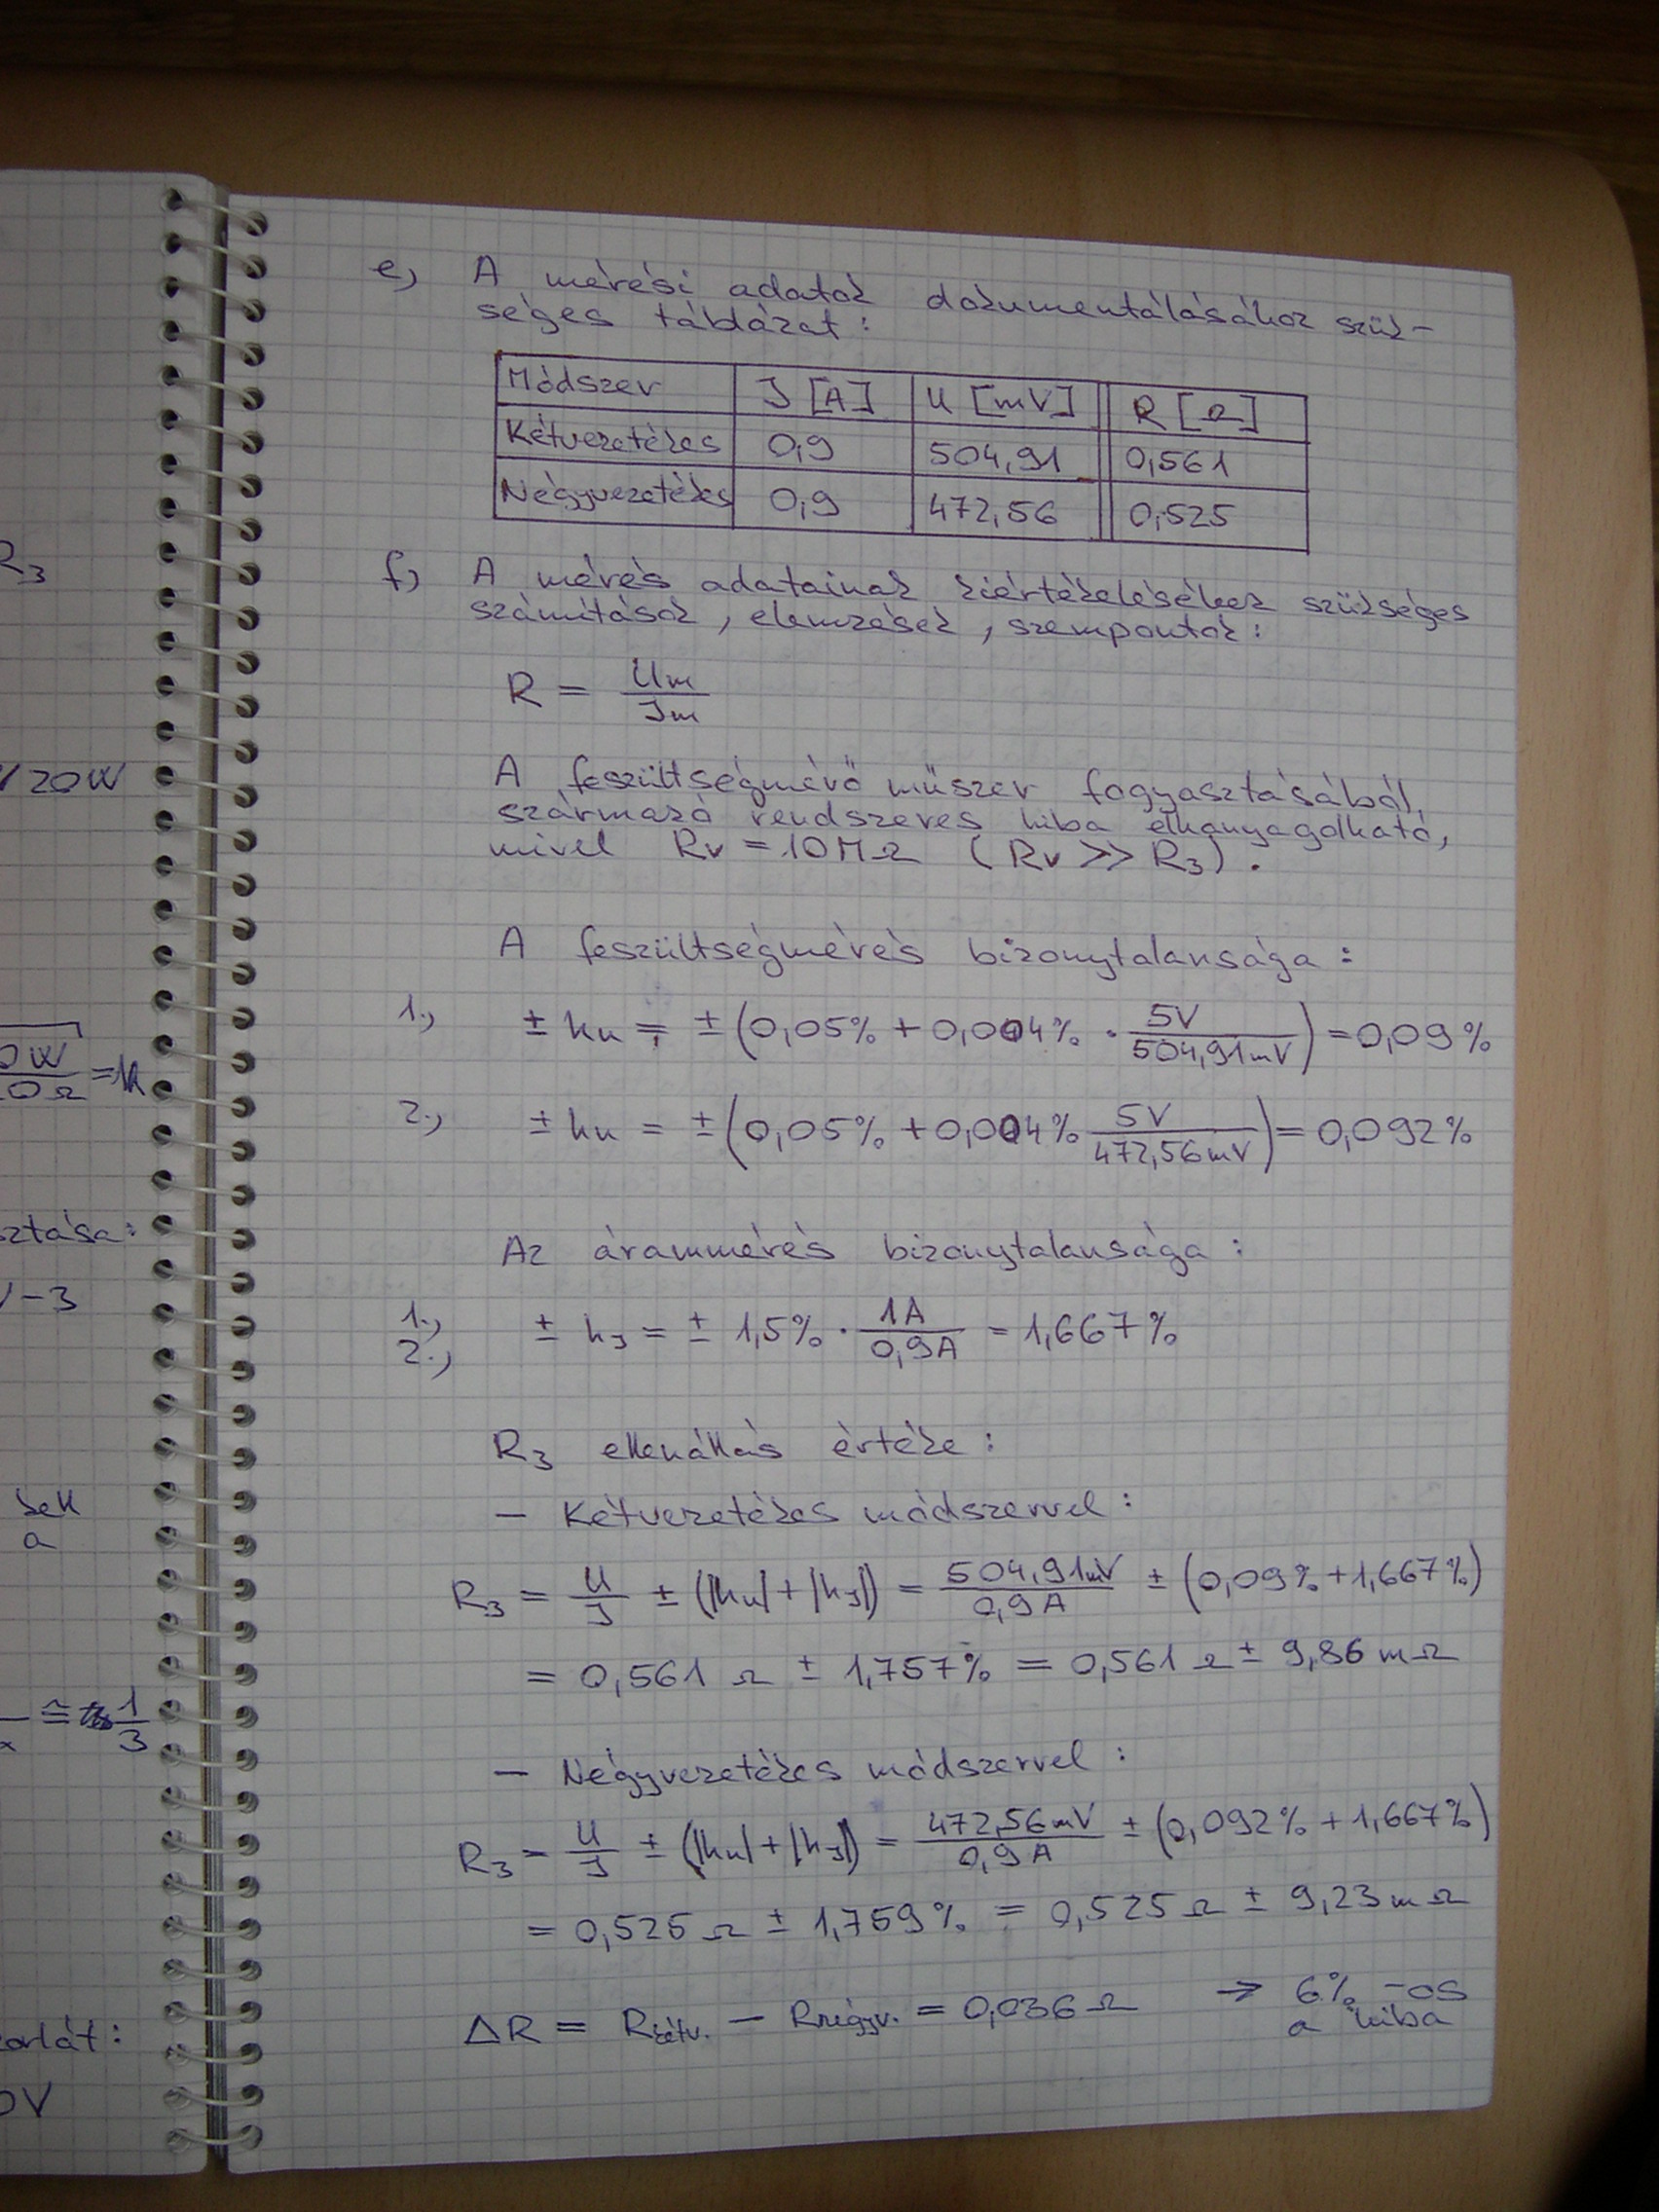 R3
/ 20W
0W
0Ω =1A
sztása:
V-3
kell
a
≅ 1/3
x
korlát:
0V
e, A mérési adatok dokumentálásához szük-
séges táblázat:
Módszer J [A] U [mV] R [Ω]
Kétvezetékes 0,9 504,91 0,561
Négyvezetékes 0,9 472,56 0,525
f, A mérés adatainak kiértékeléséhez szükséges
számítások, elemzések, szempontok:
R = Um / Jm
A feszültségmérő műszer fogyasztásából
származó rendszeres hiba elhanyagolható,
mivel Rv = 10MΩ (Rv >> R3).
A feszültségmérés bizonytalansága:
1., ± hu = ± (0,05% + 0,004% · 5V / 504,91mV) = 0,09%
2., ± hu = ± (0,05% + 0,004% 5V / 472,56mV) = 0,092%
Az árammérés bizonytalansága:
1.,
2., ± hJ = ± 1,5% · 1A / 0,9A = 1,667%
R3 ellenállás értéke:
– Kétvezetékes módszerrel:
R3 = U / J ± (|hu| + |hJ|) = 504,91mV / 0,9A ± (0,09% + 1,667%)
= 0,561 Ω ± 1,757% = 0,561 Ω ± 9,86 mΩ
– Négyvezetékes módszerrel:
R3 = U / J ± (|hu| + |hJ|) = 472,56mV / 0,9A ± (0,092% + 1,667%)
= 0,525 Ω ± 1,759% = 0,525 Ω ± 9,23 mΩ
ΔR = Rkétv. – Rnégyv. = 0,036 Ω → 6%-os
a hiba